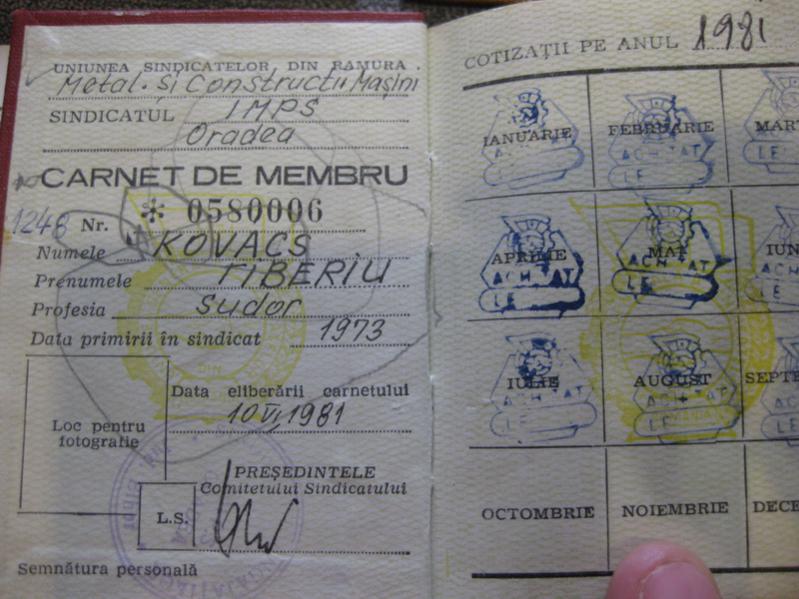 UNIUNEA SINDICATELOR DIN RAMURA
Metal. si Constructii Mașini
SINDICATUL IMPS
Oradea
CARNET DE MEMBRU
1248 Nr. * 0580006
Numele KOVACS
Prenumele TIBERIU
Profesia sudor
Data primirii în sindicat 1973
Loc pentru
fotografie
Data eliberării carnetului
10 VI 1981
PREȘEDINTELE
Comitetului Sindicatului
L.S.
Semnătura personală
COTIZAȚII PE ANUL 1981
IANUARIE FEBRUARIE MART
ACHITAT
LE
APRILIE MAI IUN
ACHITAT ACHITAT
LE LE
IULIE AUGUST SEPTE
ACHITAT ACHITAT
LE LE
OCTOMBRIE NOIEMBRIE DECE